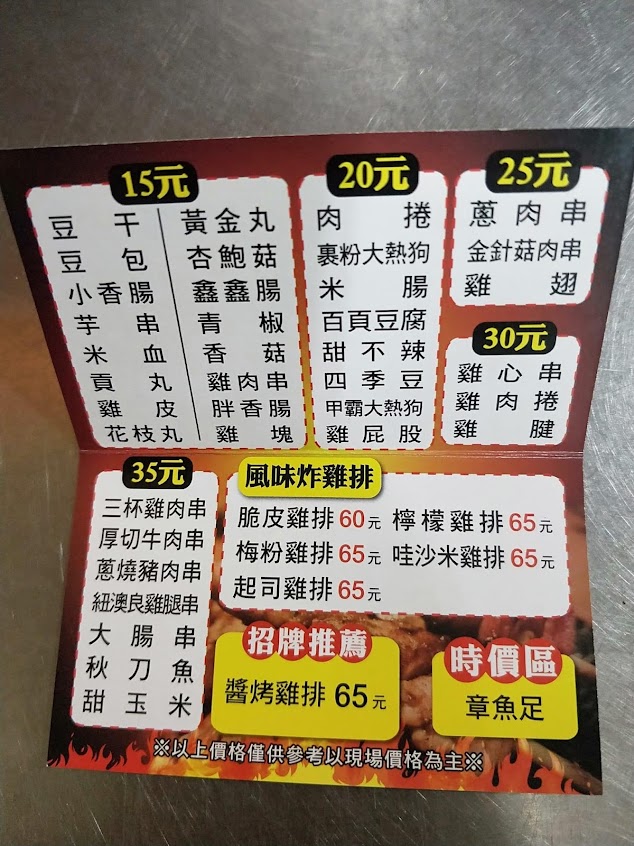 15元
豆干
豆包
小香腸
芋串
米血
貢丸
雞皮
花枝丸
黃金丸
杏鮑菇
鑫鑫腸
青椒
香菇
雞肉串
胖香腸
雞塊
20元
肉捲
裹粉大熱狗
米腸
百頁豆腐
甜不辣
四季豆
甲霸大熱狗
雞屁股
25元
蔥肉串
金針菇肉串
雞翅
30元
雞心串
雞肉捲
雞腱
35元
三杯雞肉串
厚切牛肉串
蔥燒豬肉串
紐澳良雞腿串
大腸串
秋刀魚
甜玉米
風味炸雞排
脆皮雞排60元 檸檬雞排65元
梅粉雞排65元 哇沙米雞排65元
起司雞排65元
招牌推薦
醬烤雞排 65元
時價區
章魚足
※以上價格僅供參考以現場價格為主※